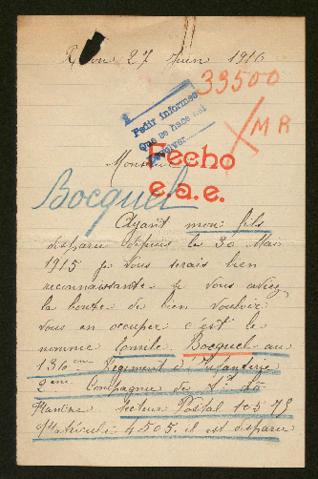 27 Juin 1916
39500
M R
Pedir informes
que se hace
Monsieur
Fecho
e a. e.
Bocquel
Ayant mon fils
disparu depuis le 30 Mai
1915 je vous serais bien
reconnaissante si vous aviez
la bonté de bien vouloir
vous en occuper c'est le
nommé Emile Bocquel au
136em Regiment d'Infanterie
2eme Compagnie
Secteur Postal
Matricule 4505 il est disparu